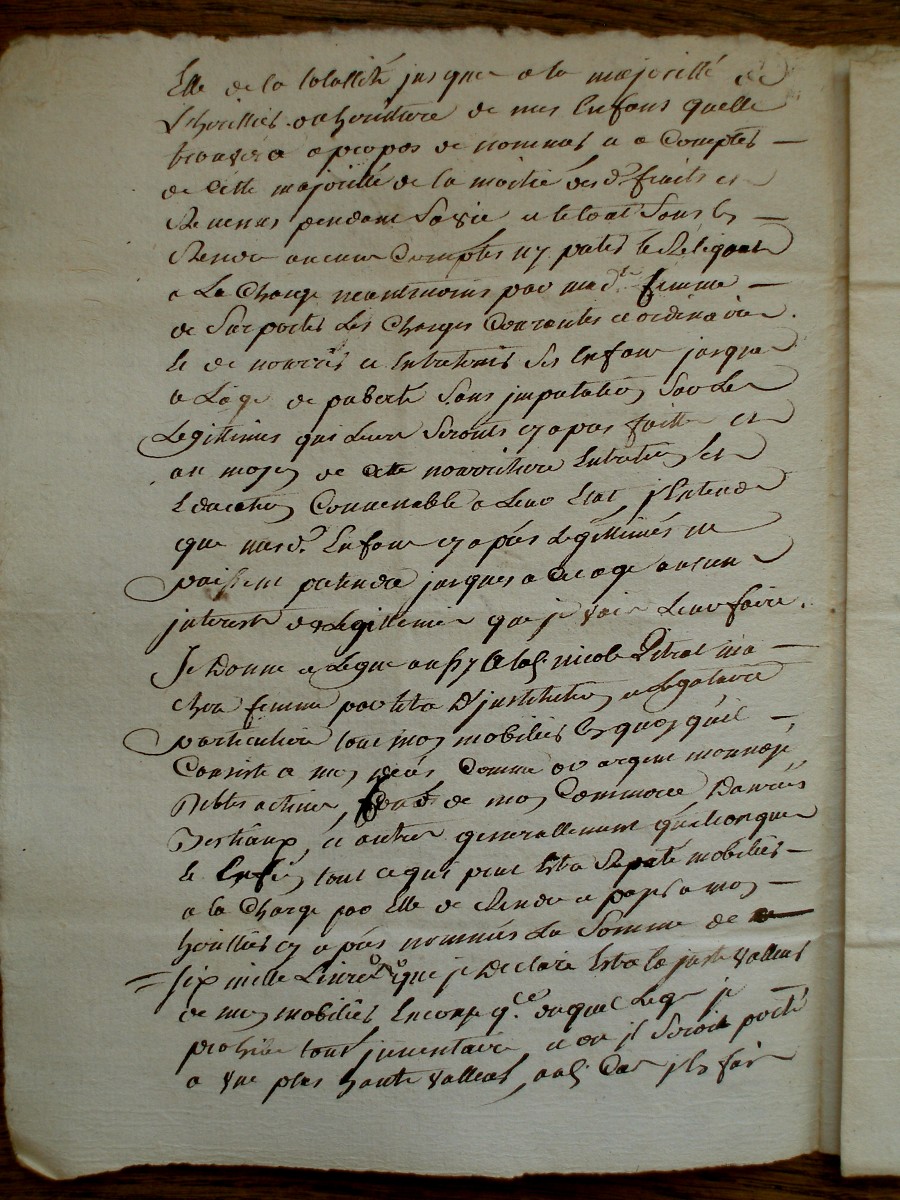 Elle de la totallité jusques a la majoritté de
L'heritier ou heritiere de mes Enfans quelle
trouvera a propos de nommer et a Compter
de cette majoritté de la moitié des d. fruits et
Revenus pendant Sa vie et le tout Sans les
Rendre aucun Comptes ny preter le Reliquat
a La Charge neantmoins par mad.te femme
de Suporter Les Charges Courantes et ordinaires
Et de nourrir et Entretenir Ses Enfans jusques
a L'age de puberté Sans imputation Sur Les
Legittimes qui Leur Seronts cy apres faitte et
au moyen de cette nourriture Entretien et
Education Convenable a Leur Etat j'Entends
que mesd.s Enfans cy apres Legittimés ne
puissent pretendre jusques a cet age aucun
interest des Legittimes que je vais Leur faire.
Je Donne et Legue aussy a lad. nicole ma
chere femme par titre D'institution et Legataire
particuliere tout mon mobilier En quoy qu'il
Consiste a mon decés Comme or argent monnoyé,
Debtes actives, fonds de mon Commerce Danrées
Bestiaux, et autres generallement quelconques
Et Enfin tout ce qui peut Estre Reputé mobilier
a la Charge par Elle de Rendre et payer a mon
heritier cy apres nommés La Somme de
six mille Livres que je Declare Estre la juste valleur
de mon mobilier Encore q.e duquel Legs je
prohibe tout inventaire et ou il Seroit porté
a une plus haute valleur, aud. Cas je fais